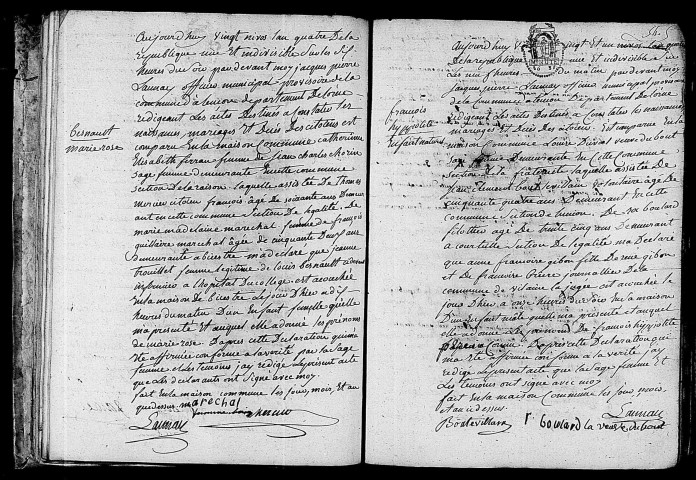 Besnault
marie rose
Aujourd'huy vingt nivos l'an quatre De la
republique une Et indivisible sur les dix
heures du soir pardevant moy jacques pierre
Launay officier municipal provisoire de la
commune d' departement De loire
redigeant Les actes Destinés a constater les
naissances, mariages Et Décès Des citoyens est
comparu En la maison Commune catherinne
Elisabeth ferrau femme De jean charles morin
sage femme demeurante En cette commune
Section De la raison laquelle assistée De Thomas
mercier citoyen françois agé De soixante ans Demeur
ant en cette commune Section De l'egalité. De
marie madelaine marechal femme de françois
quillaire marechal agée de cinquante Deux ans
demeurante a bicestre m'a declaré que jeanne
trouillet femme legitime de louis besnault
infirmier a l'hopital Du college est accouchée
En la maison de bicestre Le jour D'hier a dix
heures du matin D'un Enfant femelle qu'elle
m'a presenté Et auquel elle a donné les prénoms
de marie rose. D'apres cette Declaration qu'ils m'ont
affirmée conforme a la verité par la sage
femme Et les temoins j'ay redigé Le present acte
que Les declarants ont Signé avec moy.
fait En la maison commune les jour, mois, Et an
que dessus. marechal
Launay femme morin mercier
54.
françois
hyppolite
Enfant naturel
Aujourd'huy vingt Et un nivos L'an quatre
De la republique une Et indivisible sur
Les neuf heures Du matin pardevant moy
jacques pierre Launay officier municipal provisoire
de la commune Departement De loire
redigeant Les actes Destinés a Constater Les naissances
mariages Et Décès Des citoyens. Est comparue En la
maison Commune Louise Duval veuve dubout
Sage femme Demeurante En Cette Commune
Section De la fraternité laquelle assistée De
jean clement agé De
Cinquante quatre ans Demeurant en Cette
Commune Section de l'union. De boulard
agé De trente Cinq ans Demeurant
a courtille Section De l'egalité m'a Declaré
que anne françoise gibon fille De rené gibon
Et De françoise journalliere De la
commune de vilaine la jugée est accouchée le
jour D'hier a onze heures du soir En la maison
D'un Enfant male qu'elle m'a presenté Et auquel
elle a donné Le prenom De françois hyppolite
D'apres cette Declaration qui
m'a Eté affirmée Conforme a la verité j'ay
redigé Le present acte que la sage femme Et
Les temoins ont Signé avec moy
fait En la maison Commune Les jour, mois,
Et an que dessus. Launay
Bontevillain boulard la veuve dubout